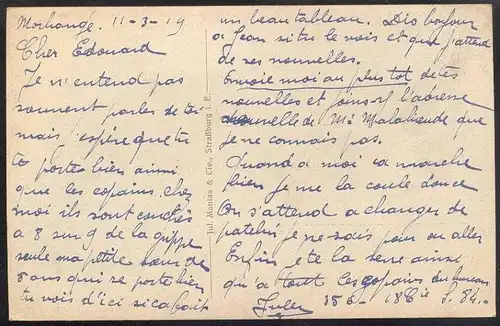 Morhange. 11-3-19
Cher Edouard
Je n'entend pas
souvent parler de toi
mais j'espère que tu
te portes bien ainsi
que les copains. chez
moi ils sont couchés
à 8 sur 9 de la grippe
seule ma petite sœur de
5 ans qui se porte bien
tu vois d'ici si ca fait
Jul. Manias & Cie., Straßburg i. E.
un beau tableau. Dis bonjour
a Jean si tu le vois et que j'attend
de ses nouvelles.
Envoie moi au plus tot de tes
nouvelles et joins y l'adresse
nouvelle de Me que
je ne connais pas.
Quand a moi ca marche
bien je me la coule douce
On s'attend a changer de
patelin je ne sais pour ou aller
Enfin je te la serre ainsi
qu'a tout les copains du bureau
Jules 356 - 18e Cie S. 84.